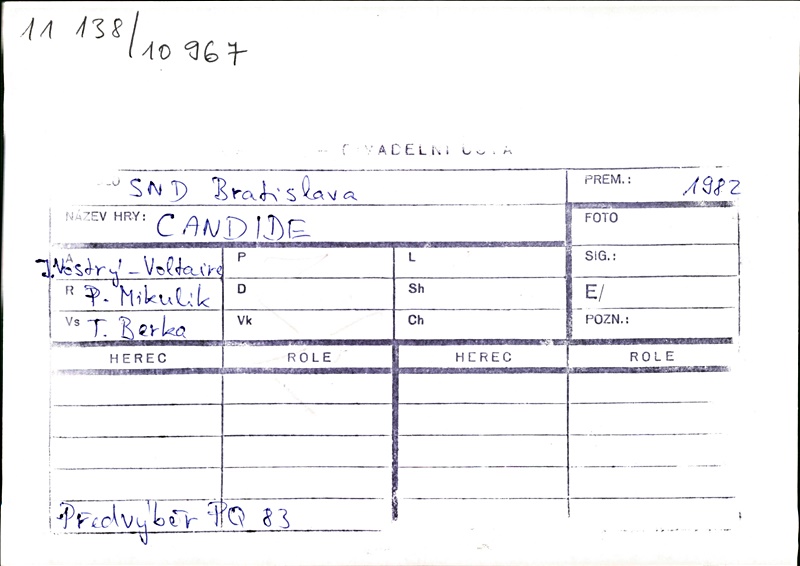 11 138/10 967
SND Bratislava PREM.: 1982
NÁZEV HRY: CANDIDE FOTO
A J. Vostrý - Voltaire P L SIG.:
R P. Mikulík D Sh E/
Vs T. Berka Vk Ch POZN.:
HEREC ROLE HEREC ROLE
Předvýběr PQ 83